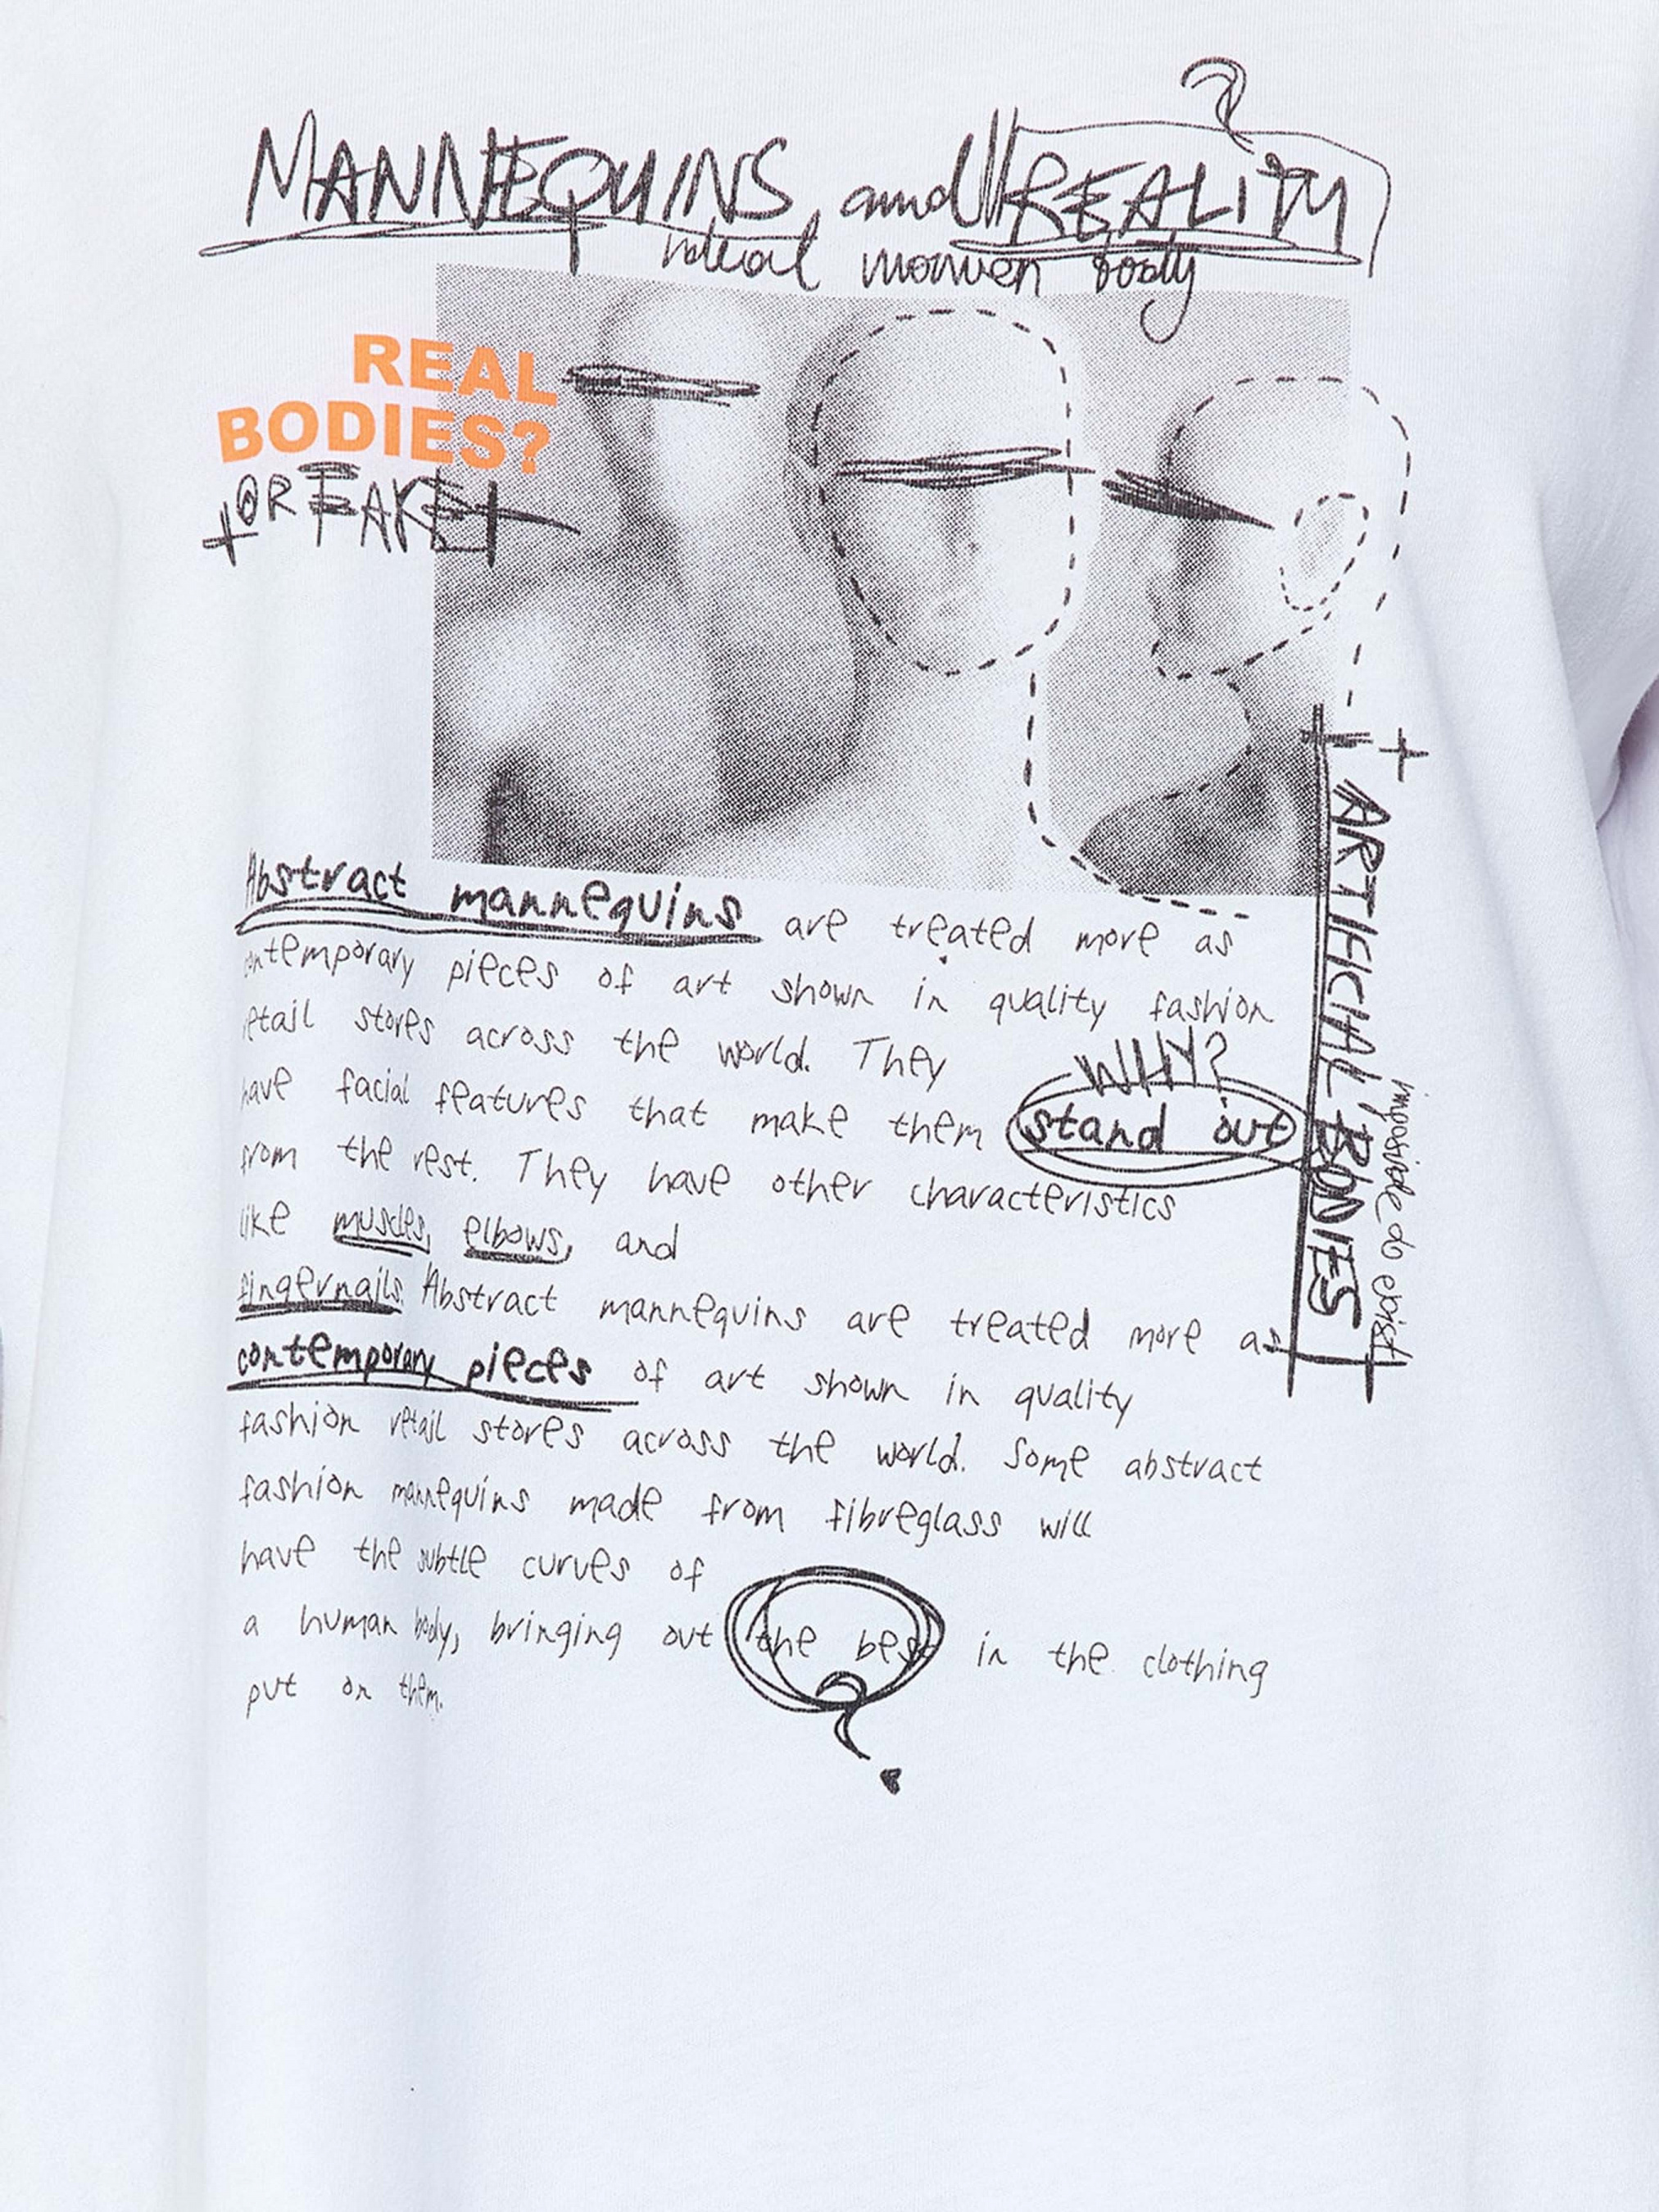 MANNEQUINS and REALITY ?
ideal women body
REAL
BODIES?
OR FAKE
Abstract mannequins are treated more as
contemporary pieces of art shown in quality fashion
retail stores across the world. They
WHY?
have facial features that make them stand out
from the rest. They have other characteristics
like muscles, elbows, and
fingernails. Abstract mannequins are treated more as
contemporary pieces of art shown in quality
fashion retail stores across the world. Some abstract
fashion mannequins made from fibreglass will
have the subtle curves of
a human body, bringing out the best in the clothing
put on them.
?
+ ARTIFICIAL BODIES
imposivle do exist